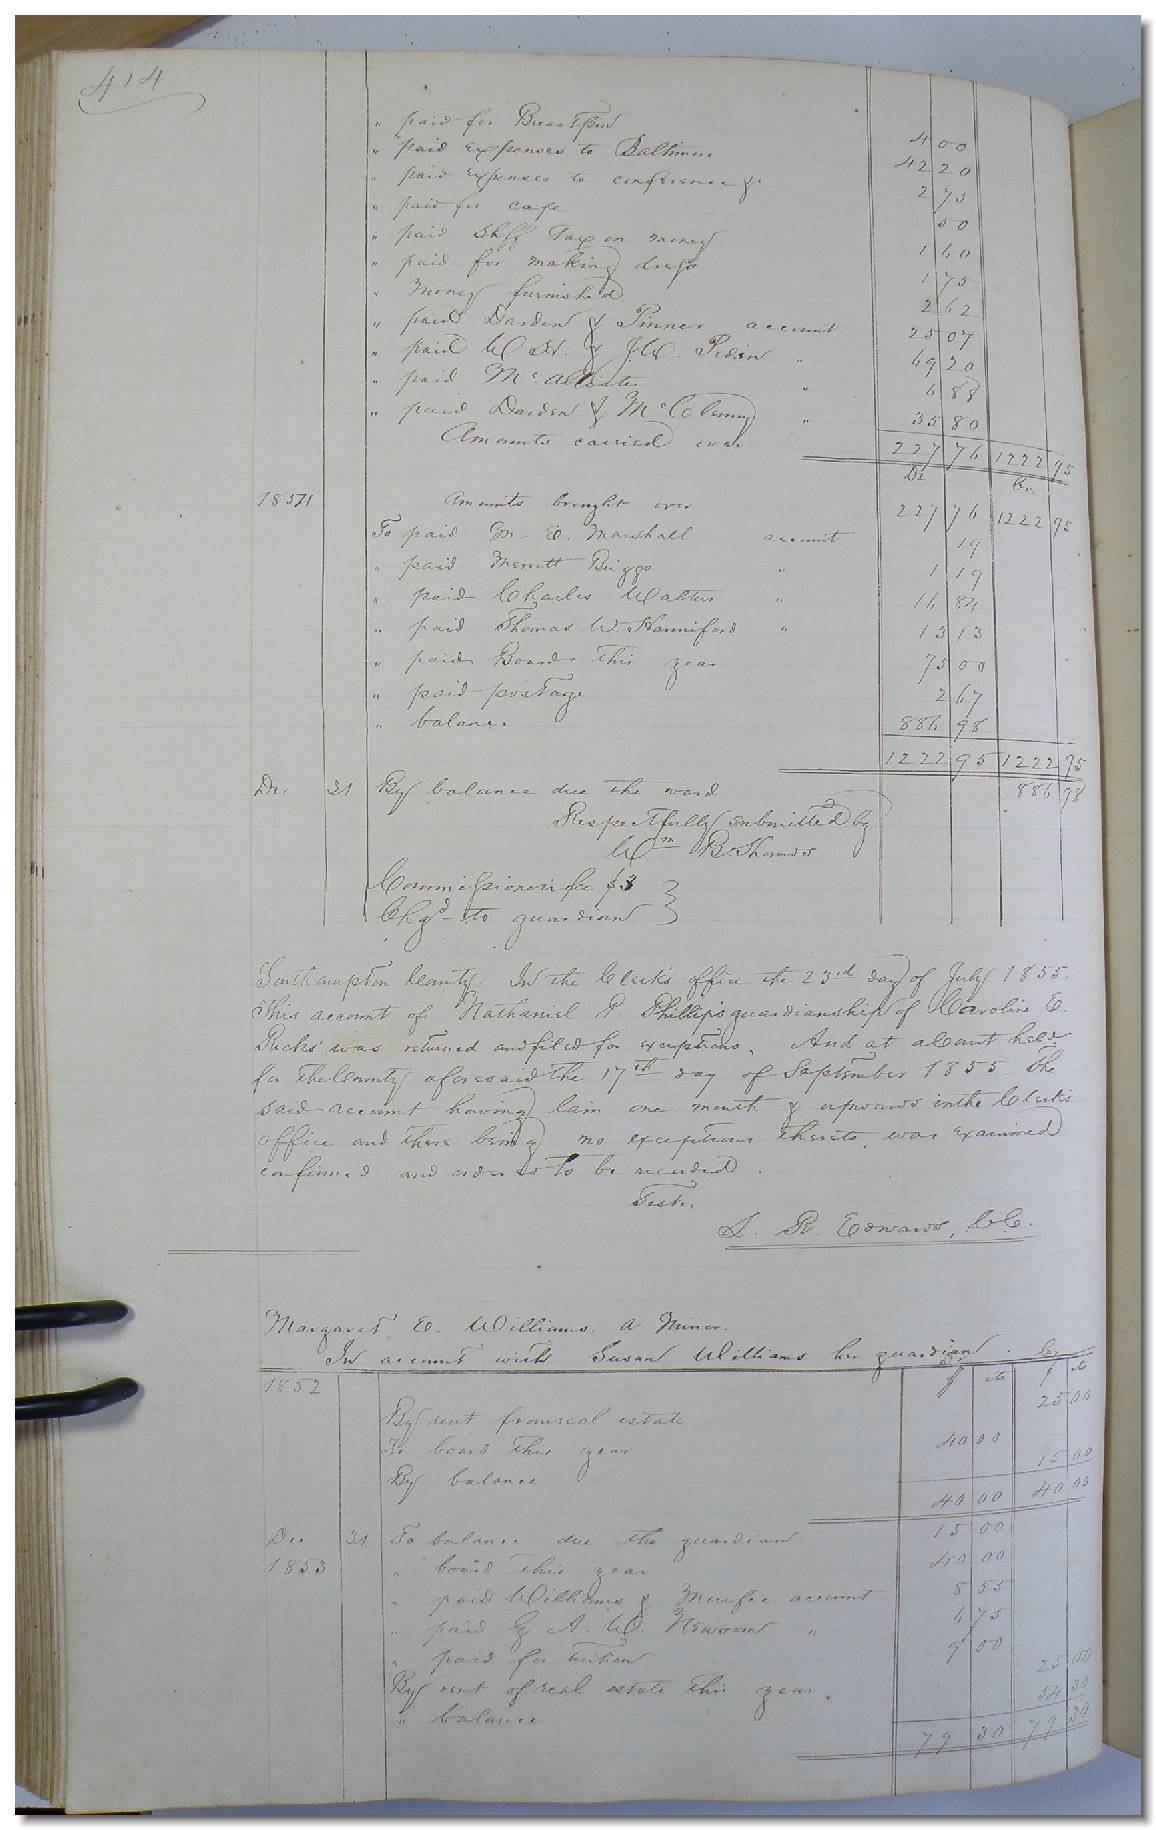 414
" paid for Breastpin 4 00
" paid expenses to Baltimore 42 20
" paid expenses to conference &c 2 75
" paid for cape 50
" paid Shff Tax on money 1 60
" paid for making dress 1 75
" Money furnished 2 62
" paid Darden & Pinner account 25 07
" paid W H. & J W. Pedin " 69 20
" paid Mc.Allister " 6 88
" paid Darden & McClenny " 35 80
Amounts carried over 227 76 1222 95
Dr Cr.
1854 Amounts brought over 227 76 1222 95
To paid M. E. Marshall account 19
" paid Merritt Briggs " 1 19
" paid Charles Walters " 16 84
" paid Thomas W. Hanniford " 13 13
" paid Board this year 75 00
" paid postage 2 67
" balance 886 98
1222 95 1222 95
Dec 31 By balance due the ward 886 98
Respectfully submitted by
Wm B. Thomas
Commissioners fee $3 }
Chgd to guardian }
Southampton County. In the Clerk's office the 23rd day of July 1855.
This account of Nathaniel P. Phillips guardianship of Caroline E.
Ricks was returned and filed for exceptions. And at a Court held
for the County aforesaid the 17th day of September 1855 The
said account having lain one month & upwards in the Clerk's
office and there being no exceptions thereto, was examined
confirmed and ordered to be recorded.
Teste.
L. R. Edwards, C.C.
Margaret E. Williams, a Minor.
In account with Susan Williams her guardian. Cr
1852 $ cts $ cts
By rent from real estate 25 00
To board this year 40 00
By balance 15 00
40 00 40 00
Dec 31 To balance due the guardian 15 00
1853 " board this year 40 00
" paid Williams & account 8 55
" paid A. W. Newsom " 6 75
" paid for tuition 9 00
By rent of real estate this year 25 00
" balance 54 30
79 30 79 30